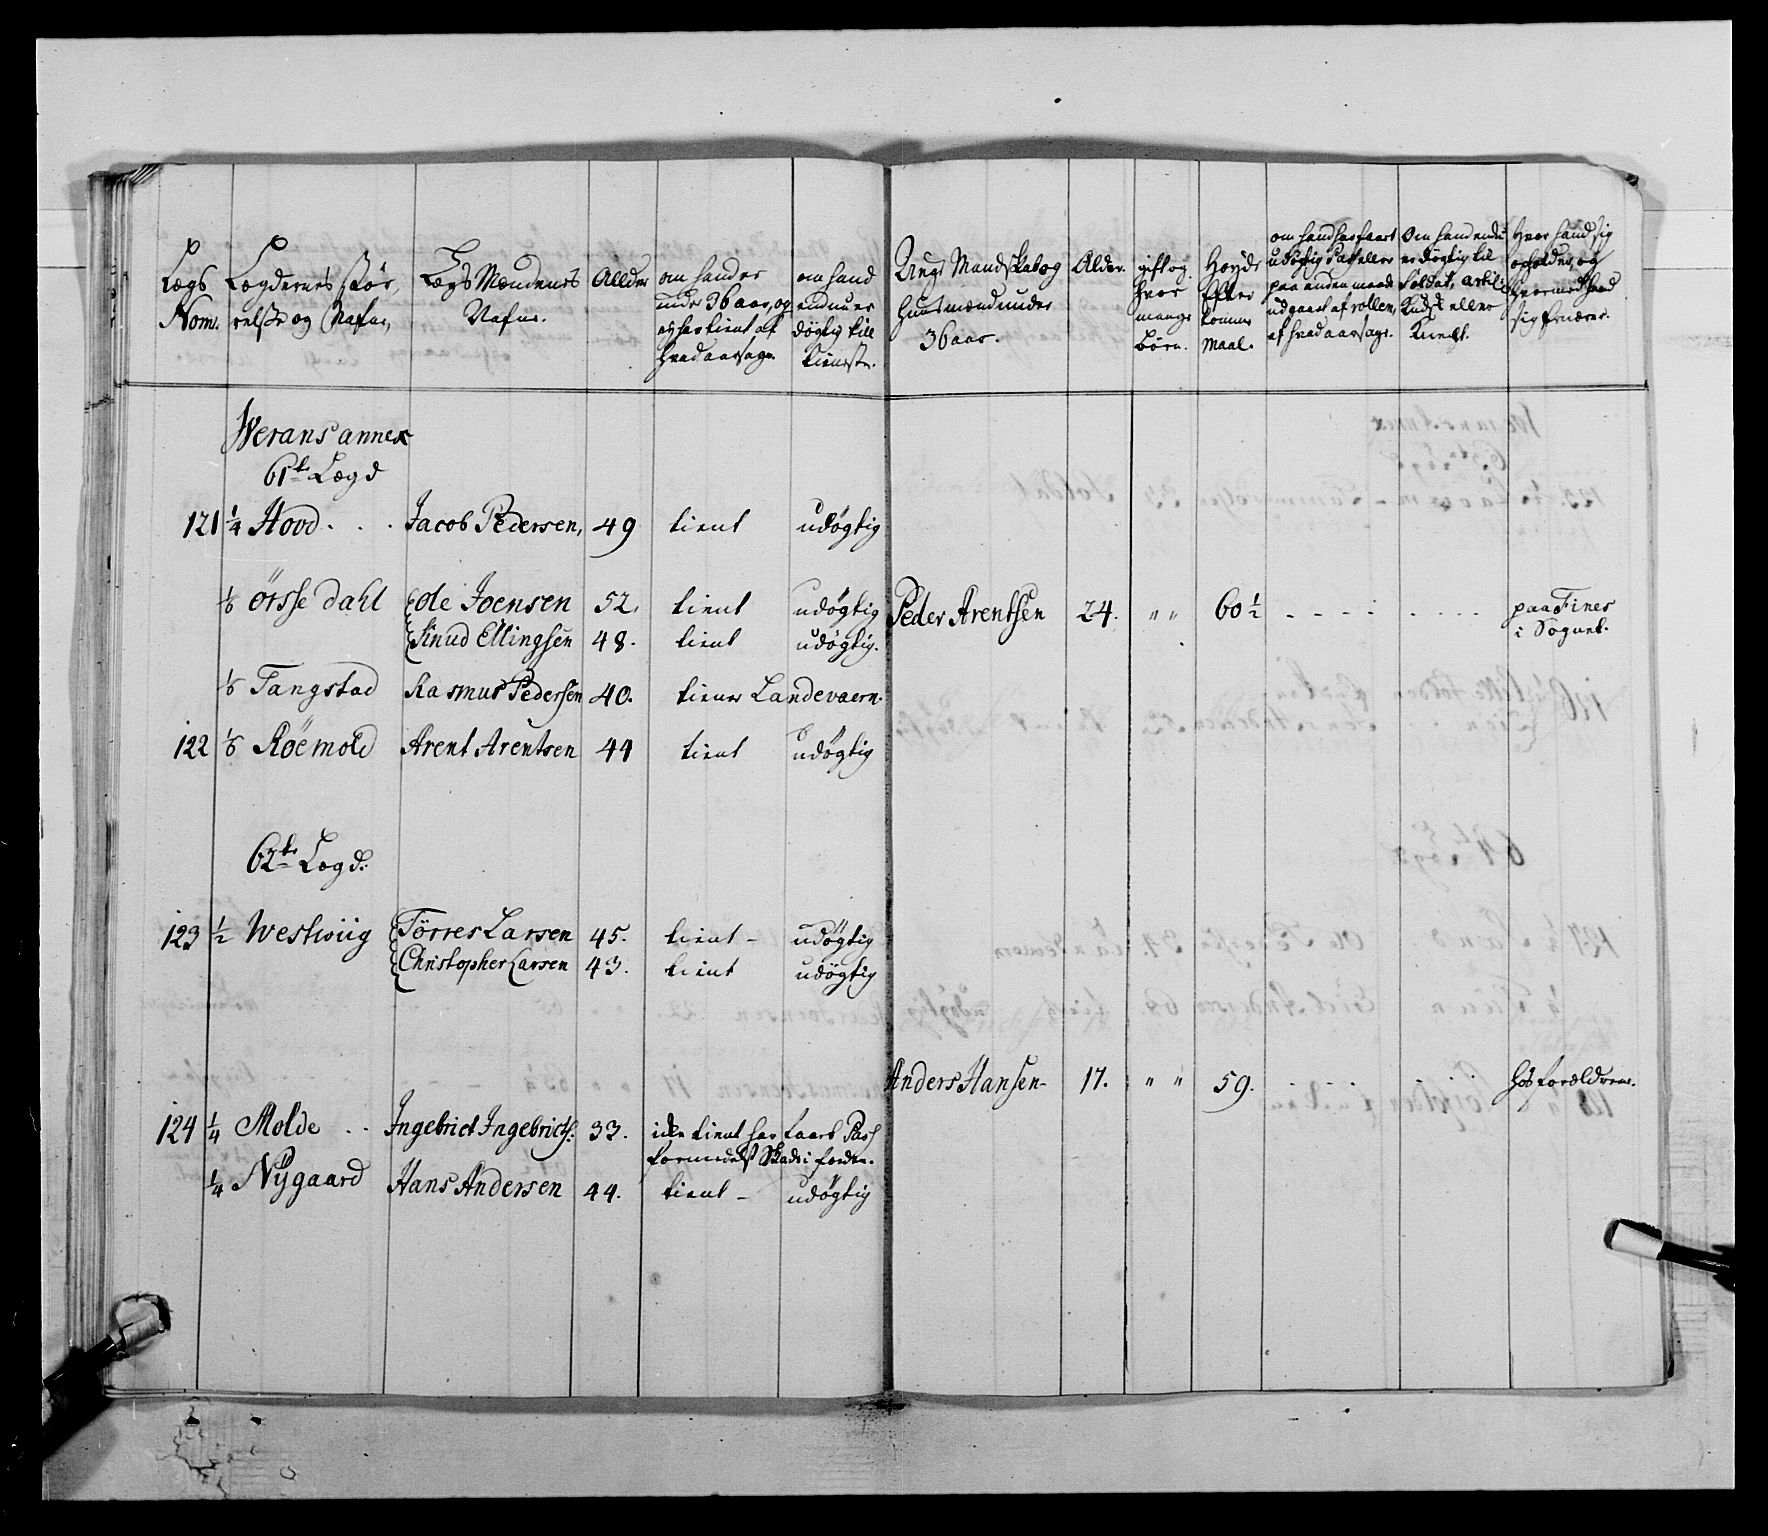 Lægs Nom.
Lægdernes stør, relse og Nafne,
Lægs Mændenes Nafne.
Allder
om hand er under 36 aar, og ey har tient af hvad aarsage
om hand endnu er døgtig till tieneste.
Unge Mandskab og Huusmænd under 36 aar.
Alder.
gift og hvor mange børn.
Høyde efter tomme maal.
om hand har faaet udøgtig Pas eller paa anden maade udgaaet af rollen, af hvad aarsage.
Om hand endu er døgtig til Soldat, eller Knegt.
Hvor hand sig opholder, og hvormed hand sig ernærer.
Werans annex
61te Lægd
121 1/4 Hovd . . . Jacob Pedersen, 49 tient udøgtig
1/8 Örsse dahl Ole Joensen 52. tient udøgtig Peder Arentsen 24. " " 60 1/2 - - - - . . . . paa Fines
Knud Ellingsen 48. tient udøgtig. i Sognet.
1/8 Tangstad Rasmus Pedersen 40. tiener Landevaern.
122 1/8 Röemold Arent Arentsen 44 tient udøgtig
62te Lægd:
123 1/2 Westwiig Törres Larsen 45. tient - udøgtig
Christopher Larsen 43. tient udøgtig
Anders Hansen - 17. " " 59. . . . . . . hos forældrene.
124 1/4 Molde . . Ingebrict Ingebricts: 33. icke tient har faaet Pass
formedelst Skade i foeden.
1/4 Nÿgaard Hans Andersen 44. tient - udøgtig